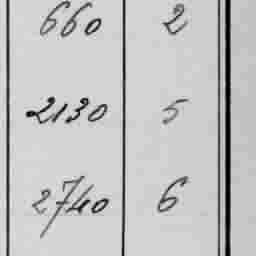 660 2
2130 5
2740 6